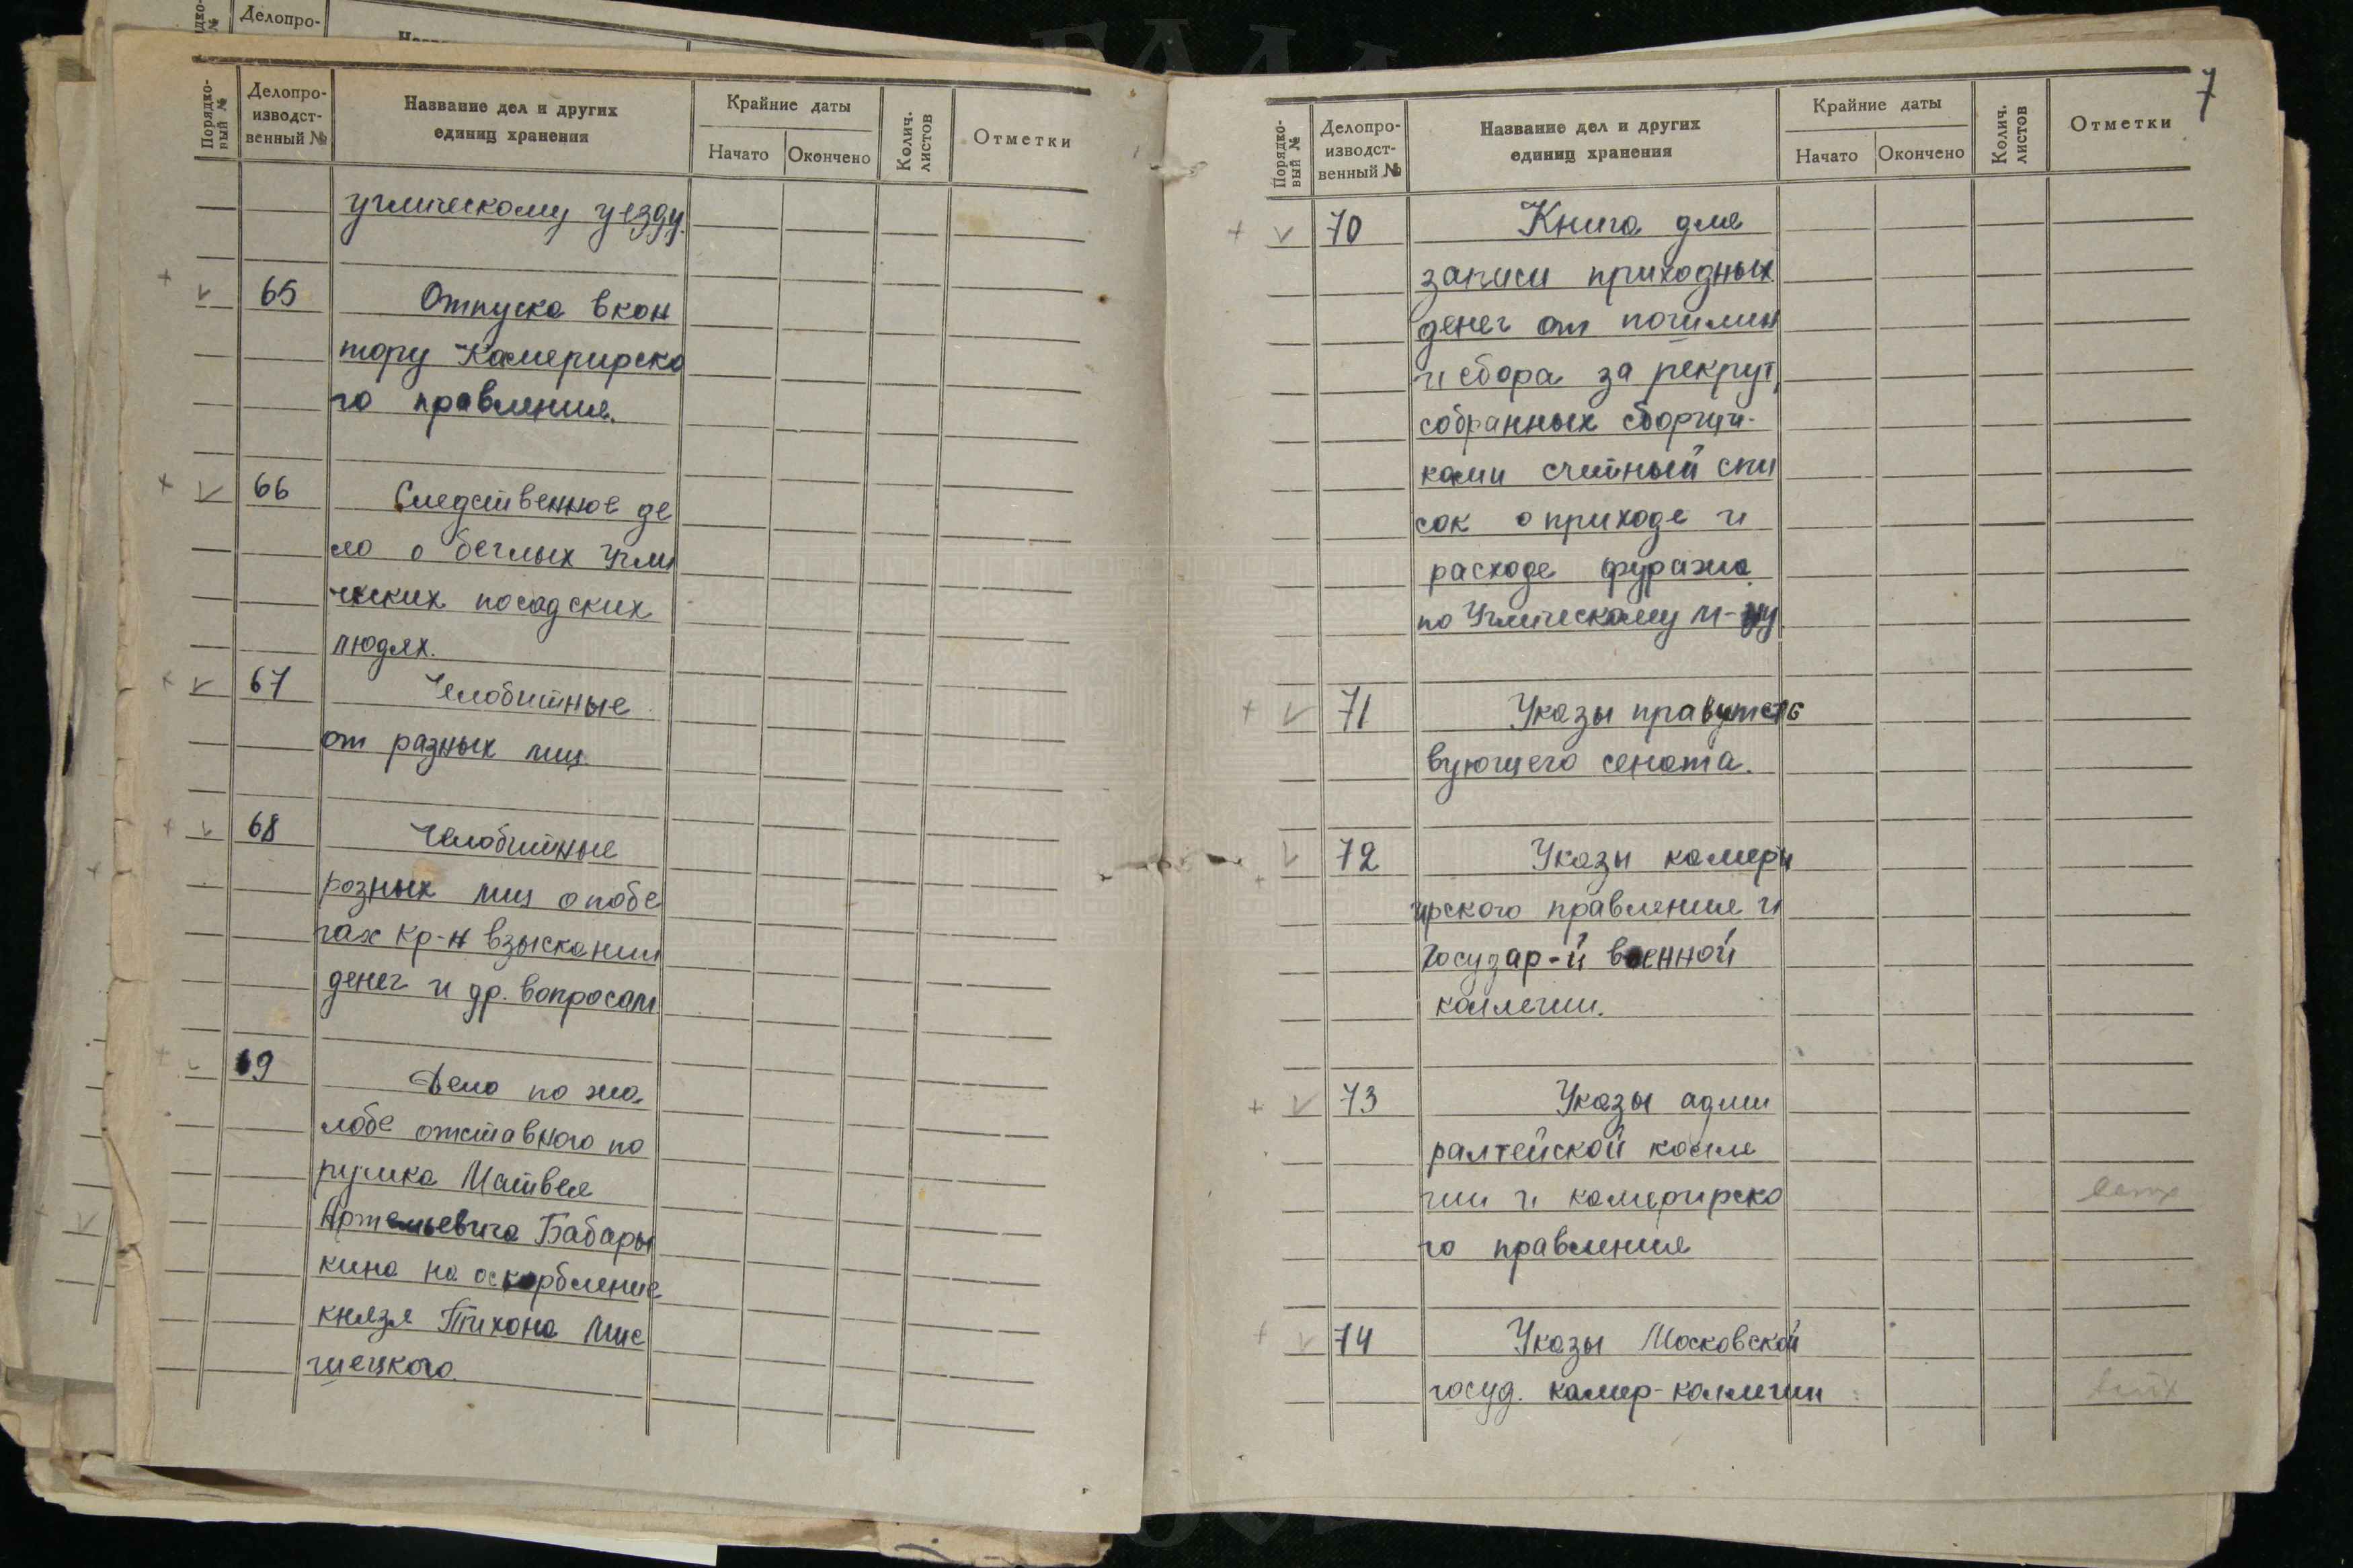 Делопро-
Порядко-
вый №
Делопро-
изводст-
венный №
Название дел и других
единиц хранения
Крайние даты
Начато
Окончено
Колич.
листов
Отметки
угличскому уезду.
65 Отпуска в кон
тору Камерирско
го правления.
66 Следственное де
ло о беглых Угли
чских посадских
людях.
67 Челобитные
от разных лиц.
68 Челобитные
разных лиц о побе
гах кр-н взыскании
денег и др. вопросам
69 Дело по жа
лобе отставного по
ручика Матвея
Артемьевича Бабары
кина на оскорбление
князя Тихона Мис
шецкого.
7
Порядко-
вый №
Делопро-
изводст-
венный №
Название дел и других
единиц хранения
Крайние даты
Начато
Окончено
Колич.
листов
Отметки
70 Книга для
записи приходных
денег от
и сбора за рекрут,
собранных сборщи-
ками счетный спи
сок о приходе и
расходе фуража
по Угличскому у-ду
71 Указы правутств
вующего сената.
72 Указы камери
ирского правления и
Государ-й военной
коллегии.
73 Указы адми
ралтейской колле
гии и камерирско
го правления
ветх
74 Указы Московской
госуд. камер-коллегии
ветх